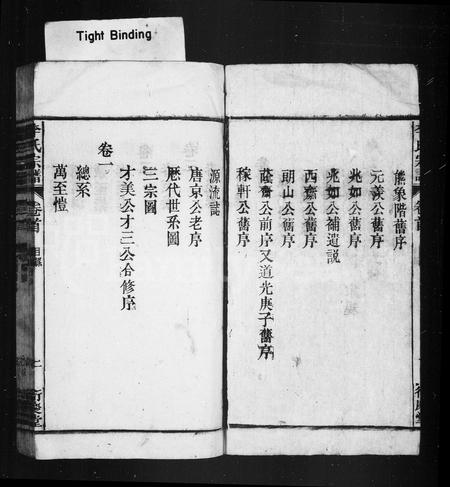 Tight Binding
熊象階舊序
元羨公舊序
兆如公舊序
兆如公補遺說
西齋公舊序
朗山公舊序
蔭齋公前序又道光庚子舊序
稼軒公舊序
源流誌
唐京公老序
歷代世系圖
三宗圖
才美公才三公合修序
卷一
總系
萬至愷
李氏宗譜
卷首
目錄